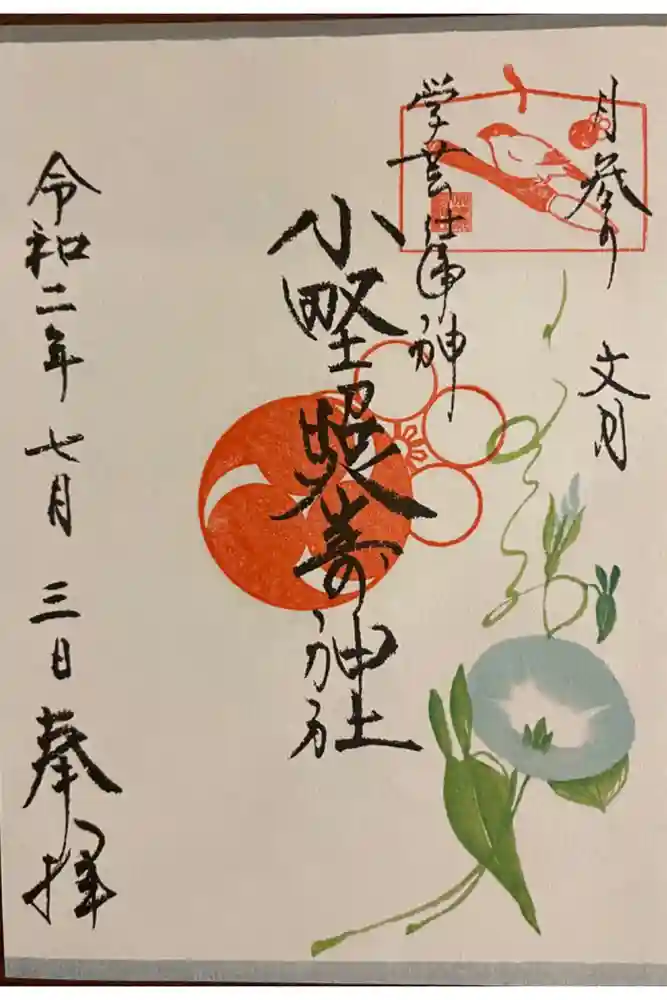 月参り 文月
学芸仕事神
小野照崎神社
令和二年七月三日 奉拝